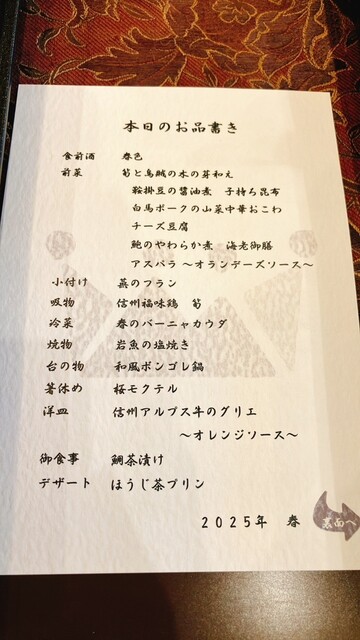 本日のお品書き
食前酒 春色
前菜 筍と烏賊の木の芽和え
鞍掛豆の醤油煮 子持ち昆布
白馬ポークの山菜中華おこわ
チーズ豆腐
鮑のやわらか煮 海老御膳
アスパラ ～オランデーズソース～
小付け 蕪のフラン
吸物 信州福味鶏 筍
冷菜 春のバーニャカウダ
焼物 岩魚の塩焼き
台の物 和風ボンゴレ鍋
箸休め 桜モクテル
洋皿 信州アルプス牛のグリエ
～オレンジソース～
御食事 鯛茶漬け
デザート ほうじ茶プリン
2025年 春
裏面へ